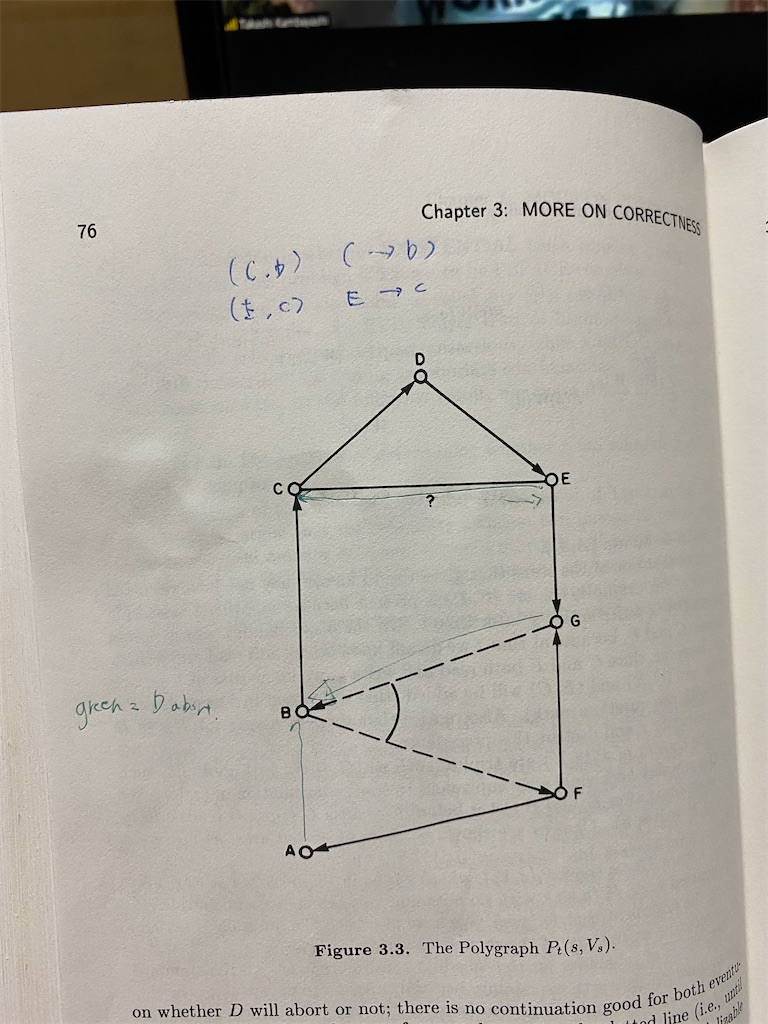 76
Chapter 3: MORE ON CORRECTNESS
(C.b) ( → b)
(E, c) E → c
D
C
E
?
G
green = D abort.
B
F
A
Figure 3.3. The Polygraph Pt(s, Vs).
on whether D will abort or not; there is no continuation good for both eventu-
line (i.e., until